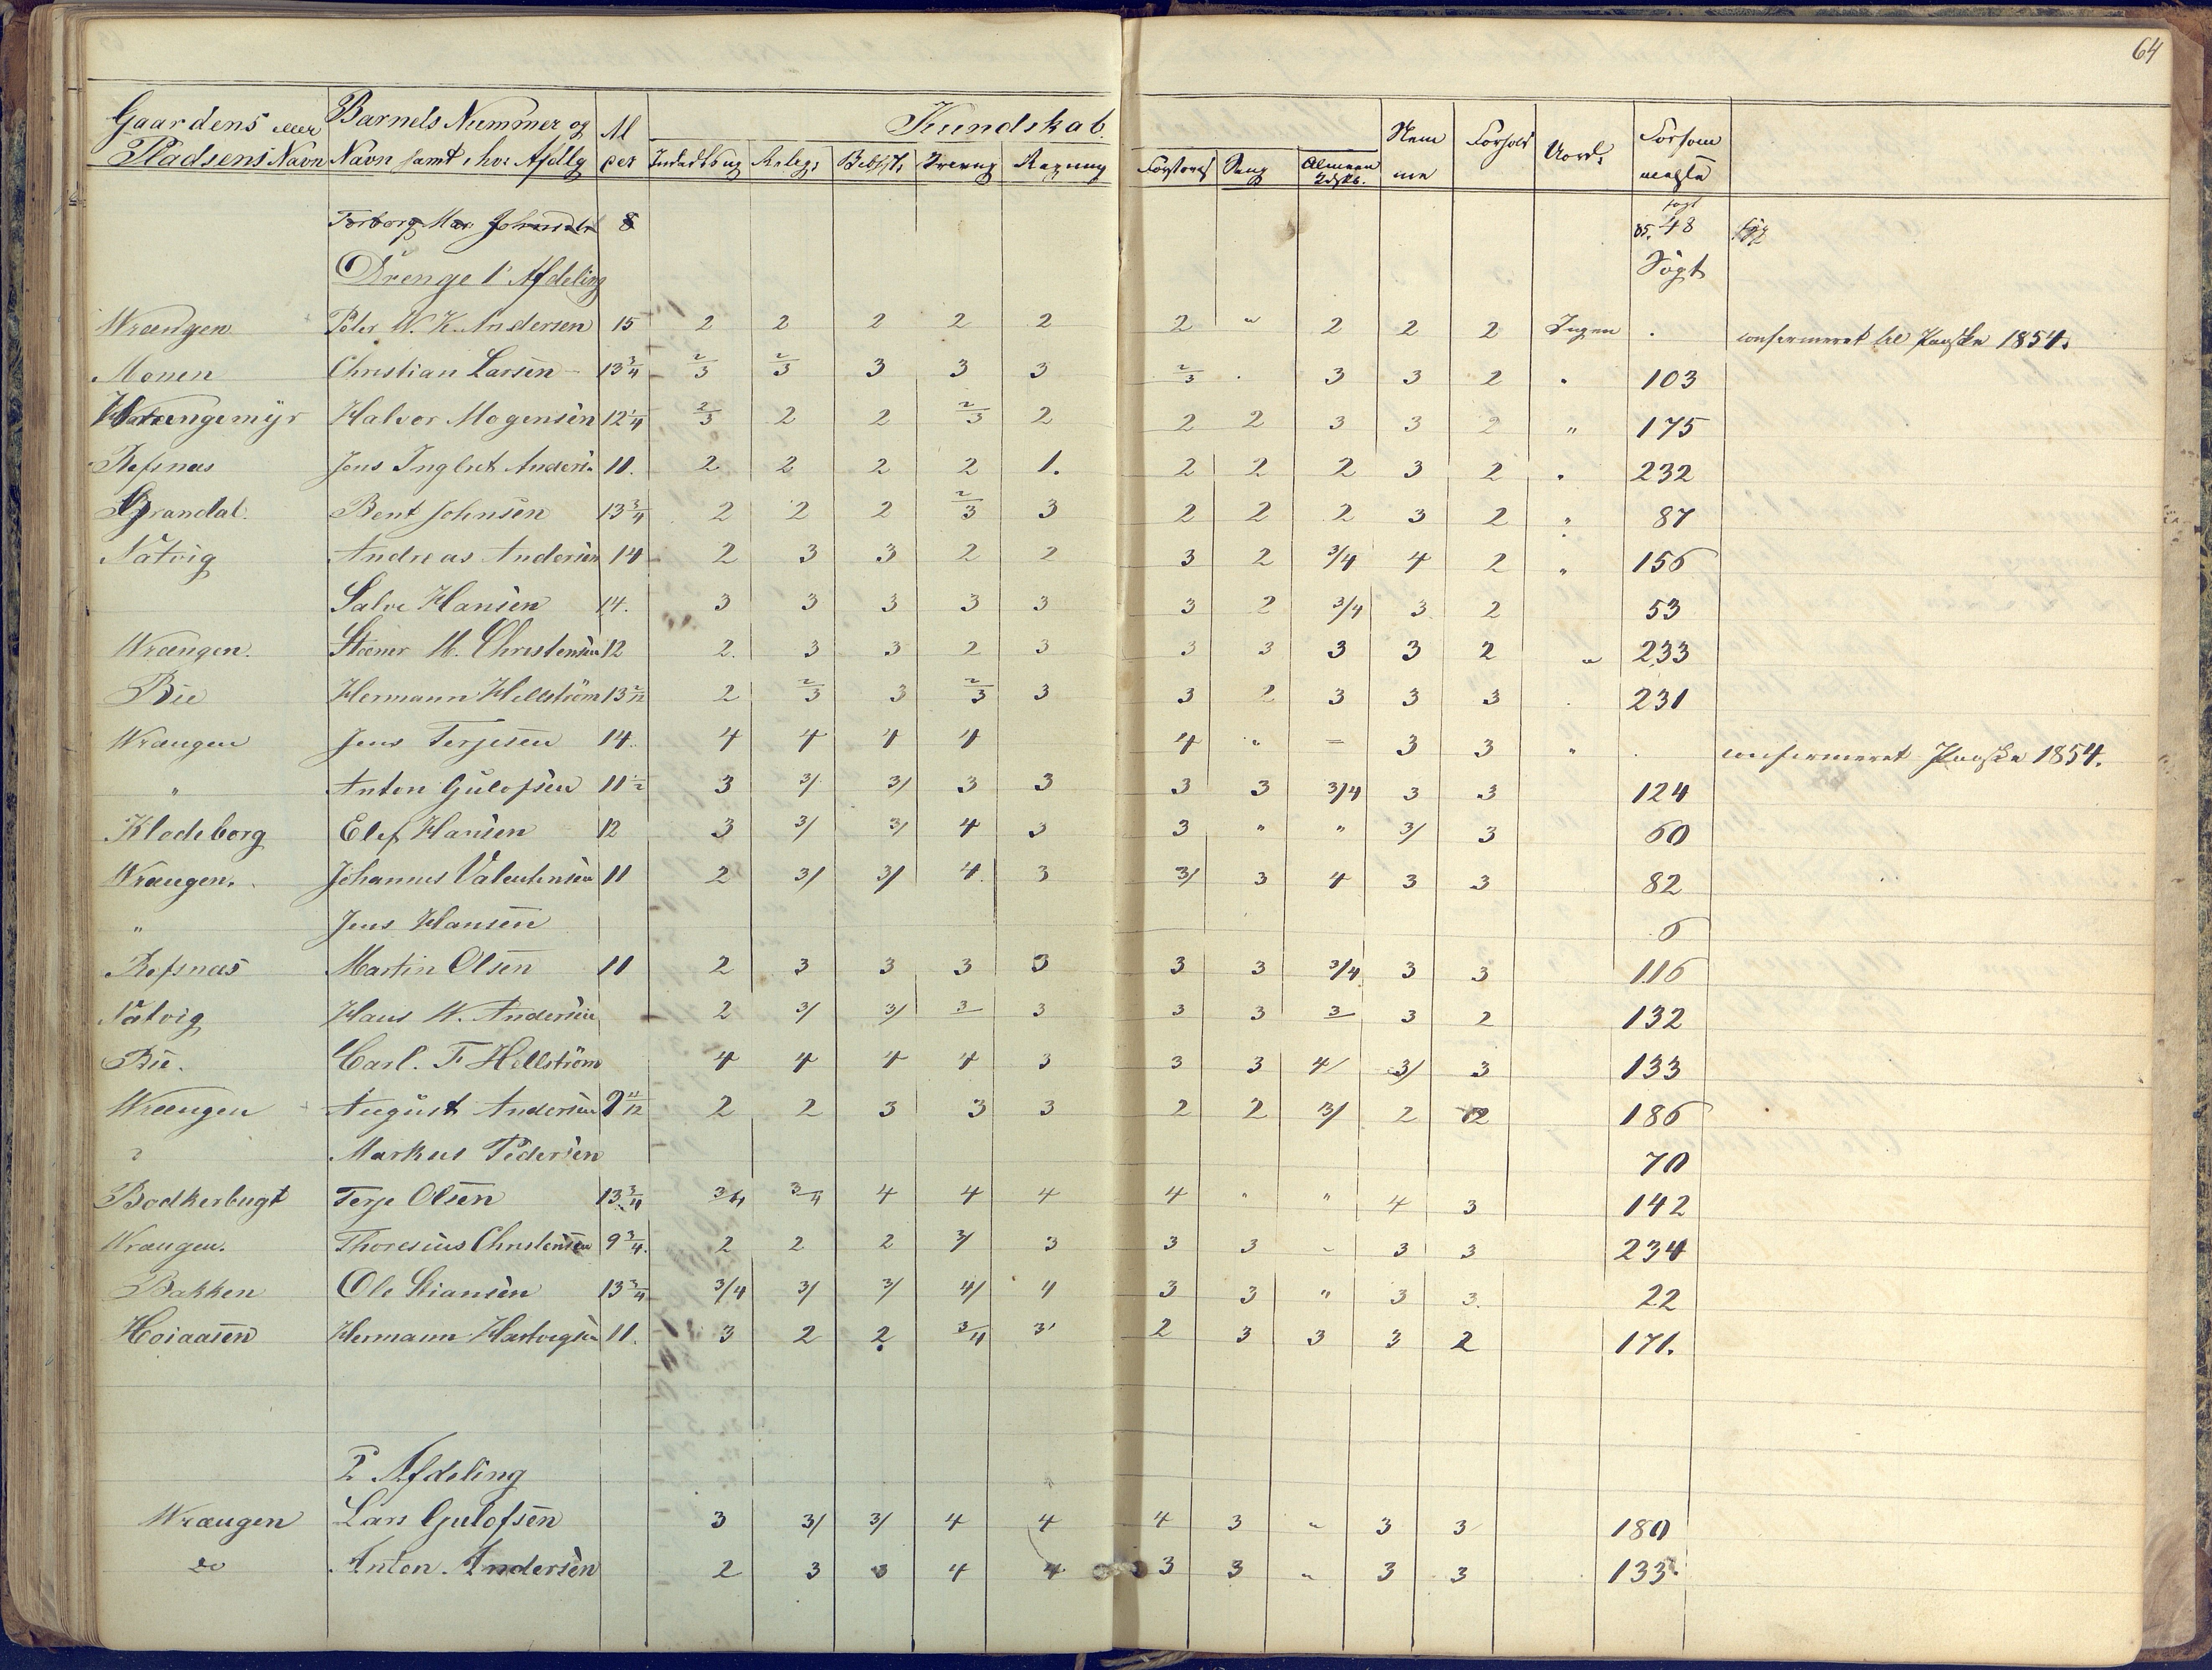 64
Gaardens eller Barnets Nummer og Al Kundskab. Nem Forhold Uord. Forsøm
Pladsens Navn Navn samt i hv: Afdlg der Religs Skrivng Regning Sang Almeen me melse
Torborg Mar. Johnsdtr 8 85. 48
Drenge 1' Afdeling Søgt
Wrængen Peter W. K. Andersen 15 2 2 2 2 2 2 " 2 2 2 Ingen . confirmeret til Paaske 1854.
Monen Christian Larsen 13 3/4 2/3 2/3 3 3 3 2/3 . 3 3 2 " 103
Wrængemÿr Halvor Mogensen 12 1/4 2/3 2 2 2/3 2 2 2 3 3 2 " 175
Refsnæs Jens Inglut Anders. 11. 2 2 2 2 1. 2 2 2 3 2 " 232
Grandal. Bent Johnsen 13 3/4 2 2 2 2/3 3 2 2 2 3 2 " 87
Natvig Andreas Andersen 14 2 3 3 2 2 3 2 3/4 4 2 " 156
Salve Hansen 14. 3 3 3 3 3 3 2 3/4 3 2 53
Wrængen. M. Christensen 12 2. 3 3 2 3 3 3 3 3 2 " 233
Bie Hermann Hellström 13 2/12 2 2/3 3 2/3 3 3 2 3 3 3 . 231
Wrængen Jens Terjesen 14. 4 4 4 4 4 " = 3 3 " . confirmeret Paaske 1854.
" Anton Gulofsen 11 1/2 3 3/ 3/ 3 3 3 3 3/4 3 3 124
Klodeborg Elef Hansen 12 3 3/ 3/ 4 3 3 " " 3/ 3 60
Wrængen. Johannes Valentinsen 11 2 3/ 3/ 4. 3 3/ 3 4 3 3 82
" Jens Hansen 6
Refsnæs Martin Olsen 11 2 3 3 3 3 3 3 3/4 3 3 116
Natvig Hans W. Andersen 2 3/ 3/ 3 3 3 3 3 3 2 132
Bie. Carl. F Hellström 4 4 4 4 3 3 3 4/ 3/ 3 133
Wrængen August Andersen 9 11/12 2 2 3 3 3 2 2 3/ 2 2 186
" Markus Pedersen 70
Bødkerbugt Terje Olsen 13 3/4 3/4 3/4 4 4 4 4 " " 4 3 142
Wrængen. Thoresius Christensen 9 3/4. 2 2 2 3/ 3 3 3 " 3 3 234
Bakken Ole Kiansen 13 3/4 3/4 3/ 3/ 4/ 4 3 3 " 3 3. 22
Høiaasen Hermann Hartvigsen 11. 3 2 2 3/4 3' 2 3 3 3 2 171.
2 Afdeling
Wrængen Lars Gulofsen 3 3/ 3/ 4 4 4 3 " 3 3 180
do Anton. Andersen 2 3 3 4 4 3 3 " 3 3 133